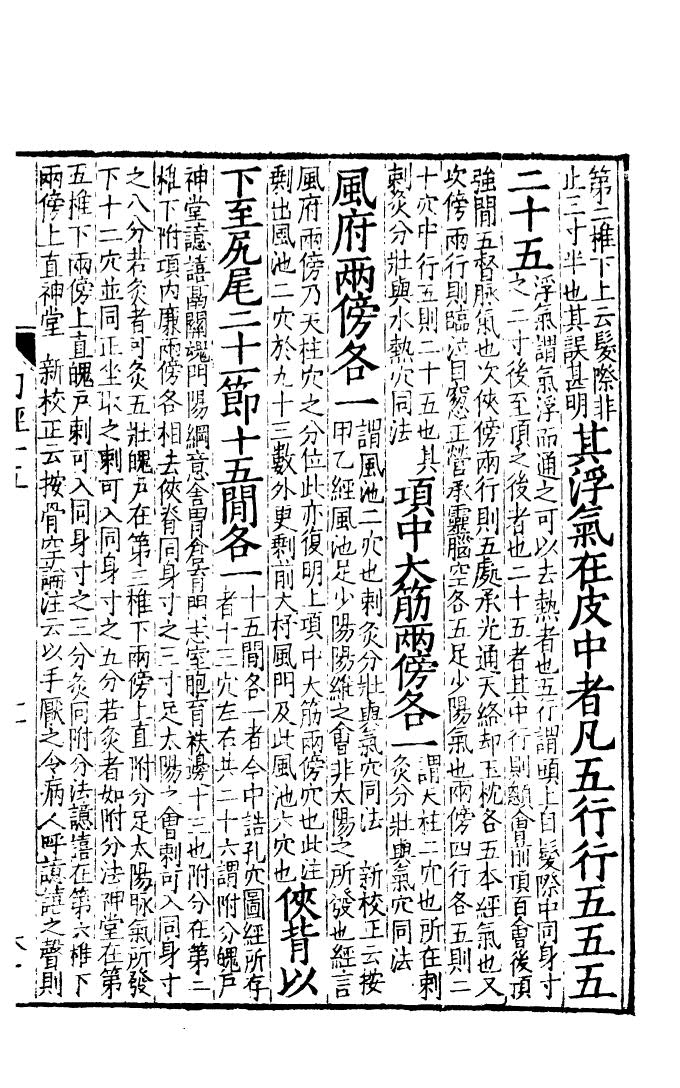 第二椎下上云髮際非
止三寸半也其誤甚明
其浮氣在皮中者凡五行行五五五
二十五
浮氣謂氣浮而通之可以去熱者也五行謂頭上自髮際中同身寸
之二寸後至項之後者也二十五者其中行則顖會前頂百會後頂
強間五督脉氣也次俠傍兩行則五處承光通天絡却玉枕各五本經氣也又
次傍兩行則臨泣目窓正營承靈腦空各五足少陽氣也兩傍四行各五則二
十穴中行五則二十五也其
刺灸分壯與水熱穴同法
項中大筋兩傍各一
謂天柱二穴也所在刺
灸分壯與氣穴同法
風府兩傍各一
謂風池二穴也刺灸分壯與氣穴同法 新校正云按
甲乙經風池足少陽陽維之會非太陽之所發也經言
風府兩傍乃天柱穴之分位此亦復明上項中大筋兩傍穴也此注
剩出風池二穴於九十三數外更剩前大杼風門及此風池六穴也
俠背以
下至尻尾二十一節十五間各一
十五間各一者今中誥孔穴圖經所存
者十三穴左右共二十六謂附分魄戶
神堂譩譆鬲關魂門陽綱意舍胃倉肓門志室胞肓秩邊十三也附分在第二
椎下附項內廉兩傍各相去俠脊同身寸之三寸足太陽之會刺可入同身寸
之八分若灸者可灸五壯魄戶在第三椎下兩傍上直附分足太陽脉氣所發
下十二穴並同正坐取之刺可入同身寸之五分若灸者如附分法神堂在第
五椎下兩傍上直魄戶刺可入同身寸之三分灸同附分法譩譆在第六椎下
兩傍上直神堂 新校正云按骨空論注云以手厭之令病人呼譩譆之聲則